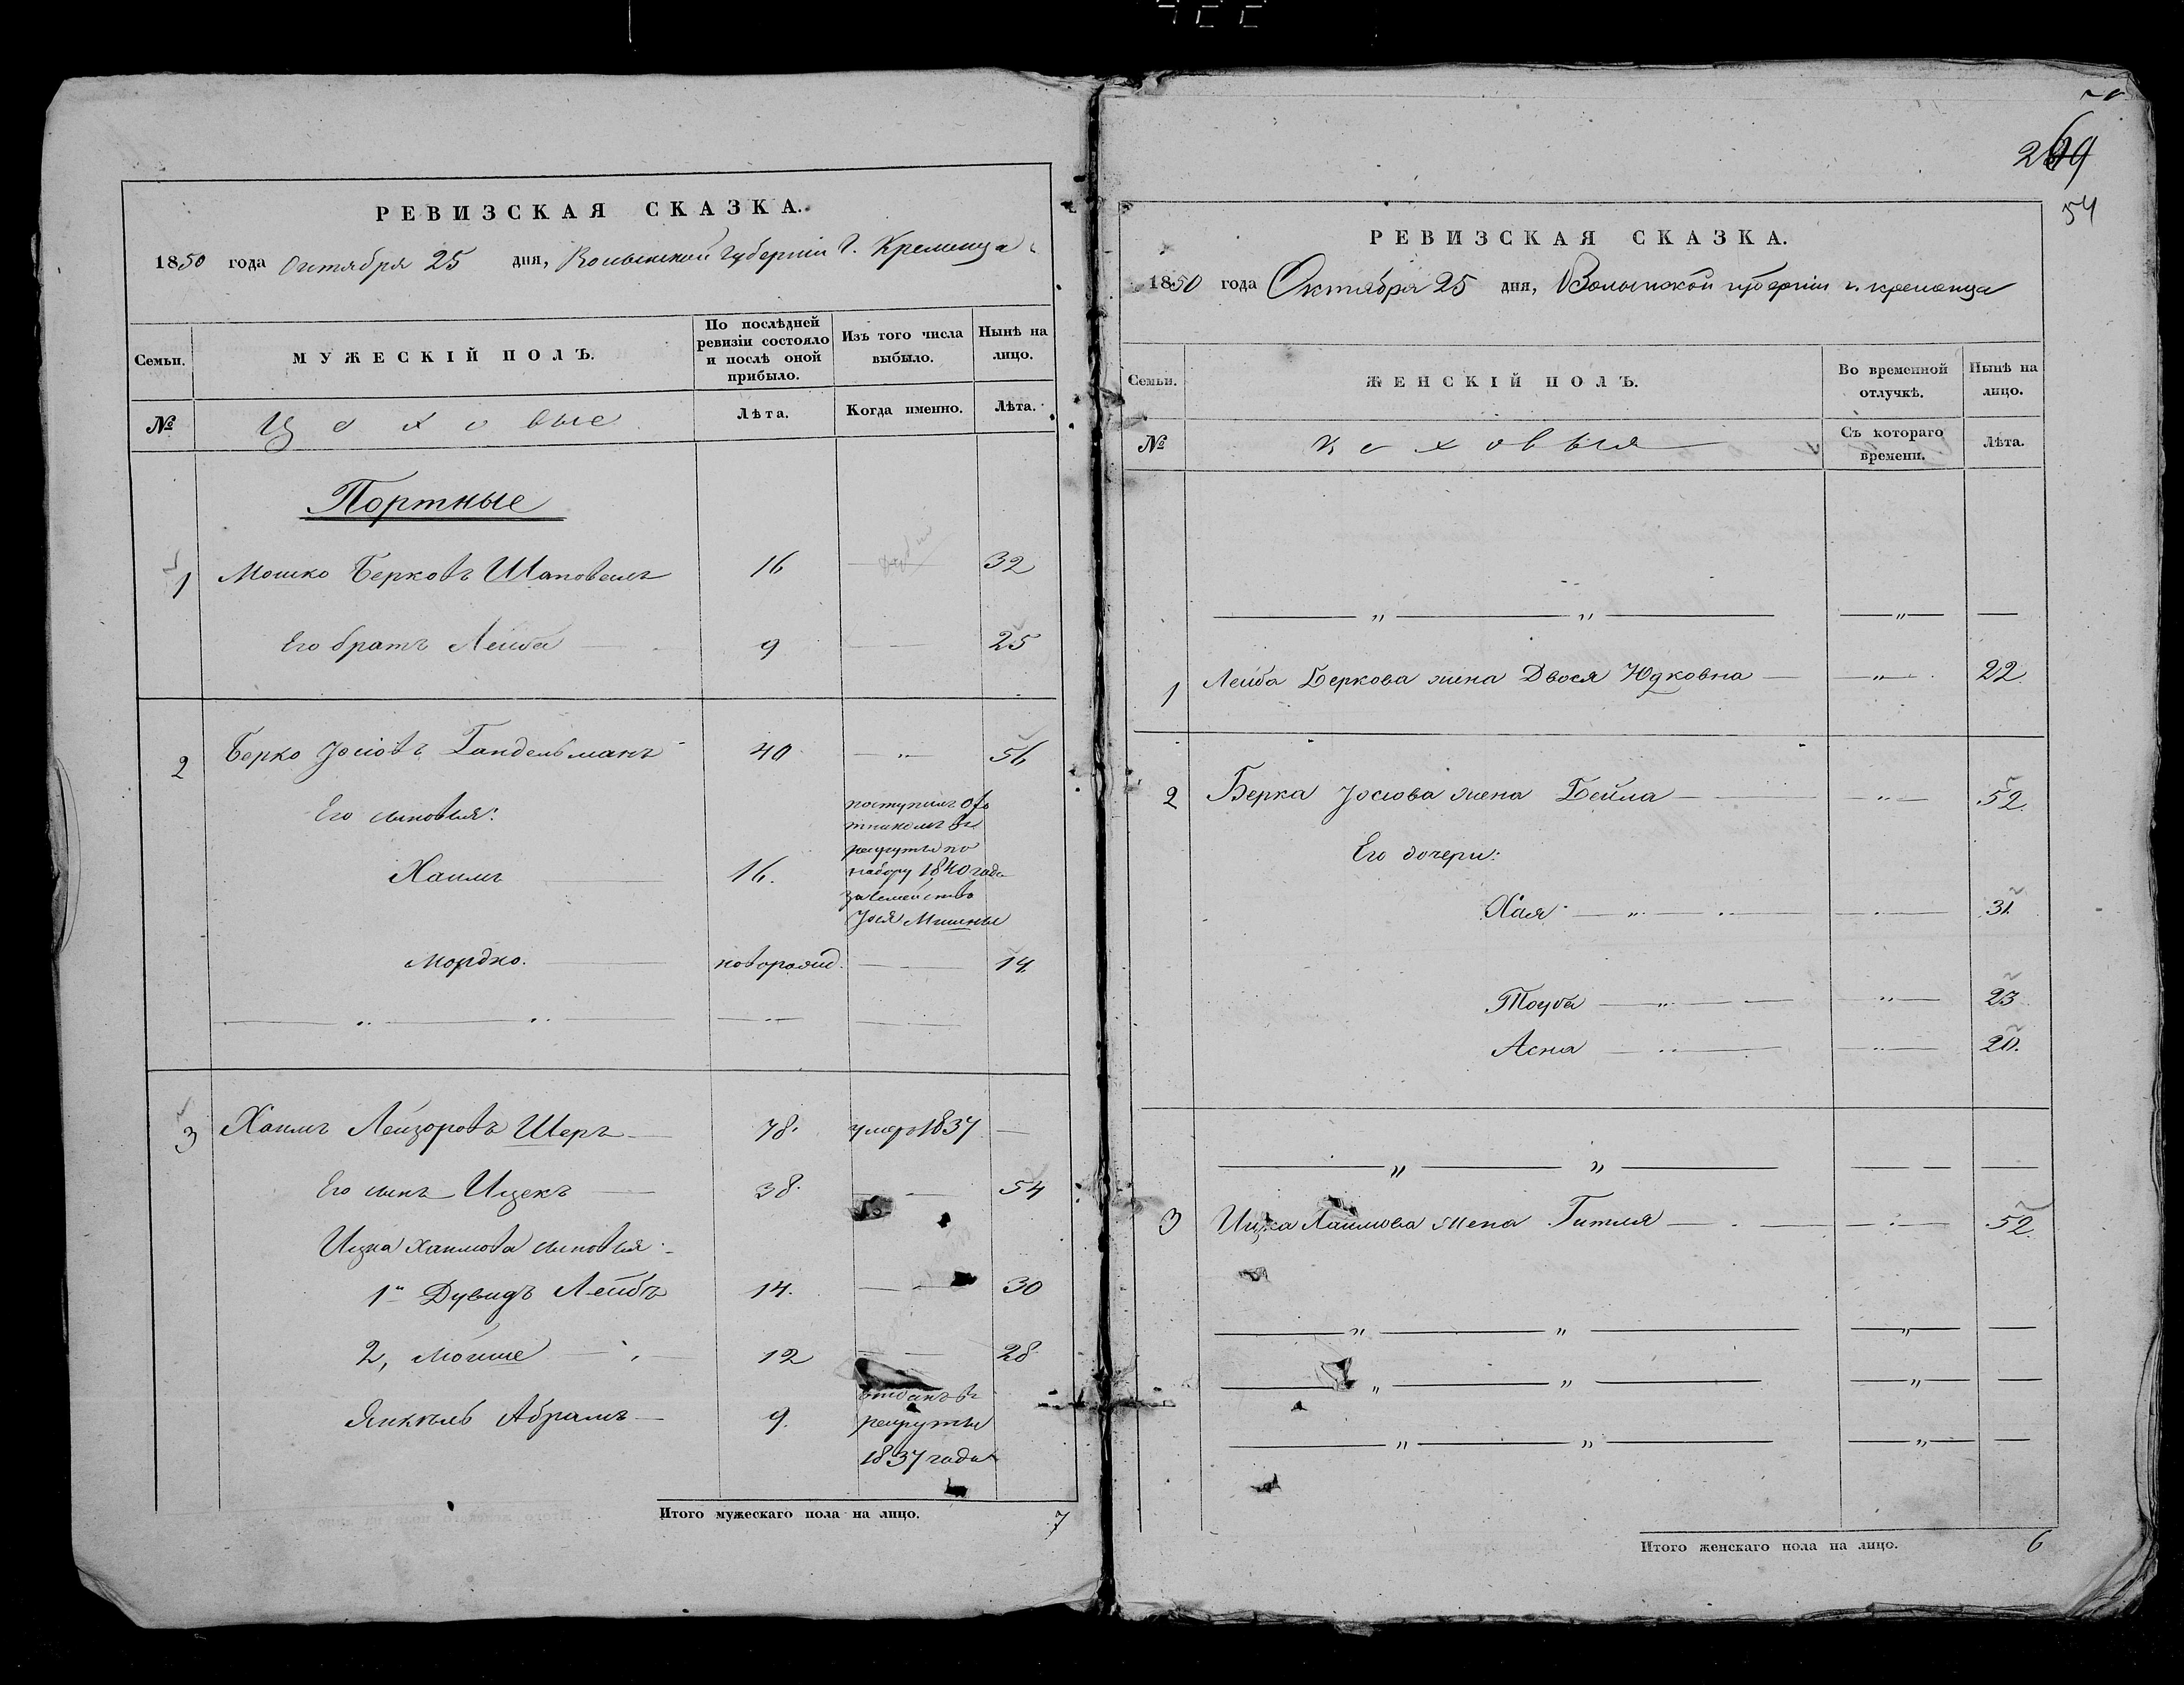 269
54
РЕВИЗСКАЯ СКАЗКА.
1850 года Октября 25 дня, Волынской губерніи г. Кременца
Семьи. МУЖЕСКІЙ ПОЛЪ. По послѣдней ревизіи состояло и послѣ оной прибыло. Изъ того числа выбыло. Нынѣ на лицо.
№ Цеховые Лѣта. Когда именно. Лѣта.
Портные
1 Мошко Берковъ Шаповалъ 16 32
Его братъ Лейба 9 25
2 Берко Іосіовъ Гандельманъ 40 56
Его сыновья:
Хаимъ 16.
поступилъ охо
тникомъ въ
рекруты по
набору 1840 года
за семейство
Іося Мишны
Мордко. новорожд. 14
3 Хаимъ Лейзоровъ Шеръ 78. умеръ 1837
Его сынъ Ицекъ 38. 54
Ицка Хаимова сыновья
1й Дувидъ Лейбъ 14. 30
2, Мошше 12 28
Янкель Абрамъ 9. отданъ въ
рекруты
1837 года
Итого мужескаго пола на лицо. 7
РЕВИЗСКАЯ СКАЗКА.
1850 года Октября 25 дня, Волынской губерніи г. кременца
Семьи. ЖЕНСКІЙ ПОЛЪ. Во временной отлучкѣ. Нынѣ на лицо.
№ цеховыя Съ котораго времени. Лѣта.
1 Лейба Беркова жена Двося Юдковна 22
2 Берка Іосіова жена Бейла 52
Его дочери:
Хая 31
Тоуба 23
Асна 20.
3 Ицка Хаимова жена Гитля 52
Итого женскаго пола на лицо. 6